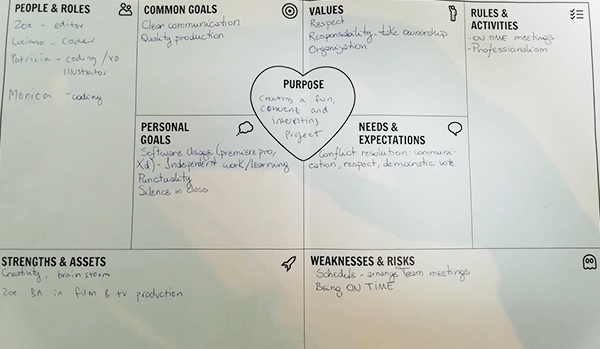 PEOPLE & ROLES
Zoe - editor
Luciano - coder
Patricia - coding / XD
Illustrator
Monica - coding
COMMON GOALS
Clear communication
Quality production
VALUES
Respect
Responsability - take ownership
Organization
RULES &
ACTIVITIES
- ON TIME meetings
- Professionalism
PURPOSE
Creating a fun,
coherent and
interesting
project
PERSONAL
GOALS
Software Usage (premiere pro,
Xd) - Independent work/learning
Punctuality
Silence in class
NEEDS &
EXPECTATIONS
Conflict resolution: communi-
cation, respect, democratic vote
STRENGTHS & ASSETS
Creativity, brain storm
Zoe BA in film & tv production
WEAKNESSES & RISKS
Schedule - arrange team meetings
Being ON TIME